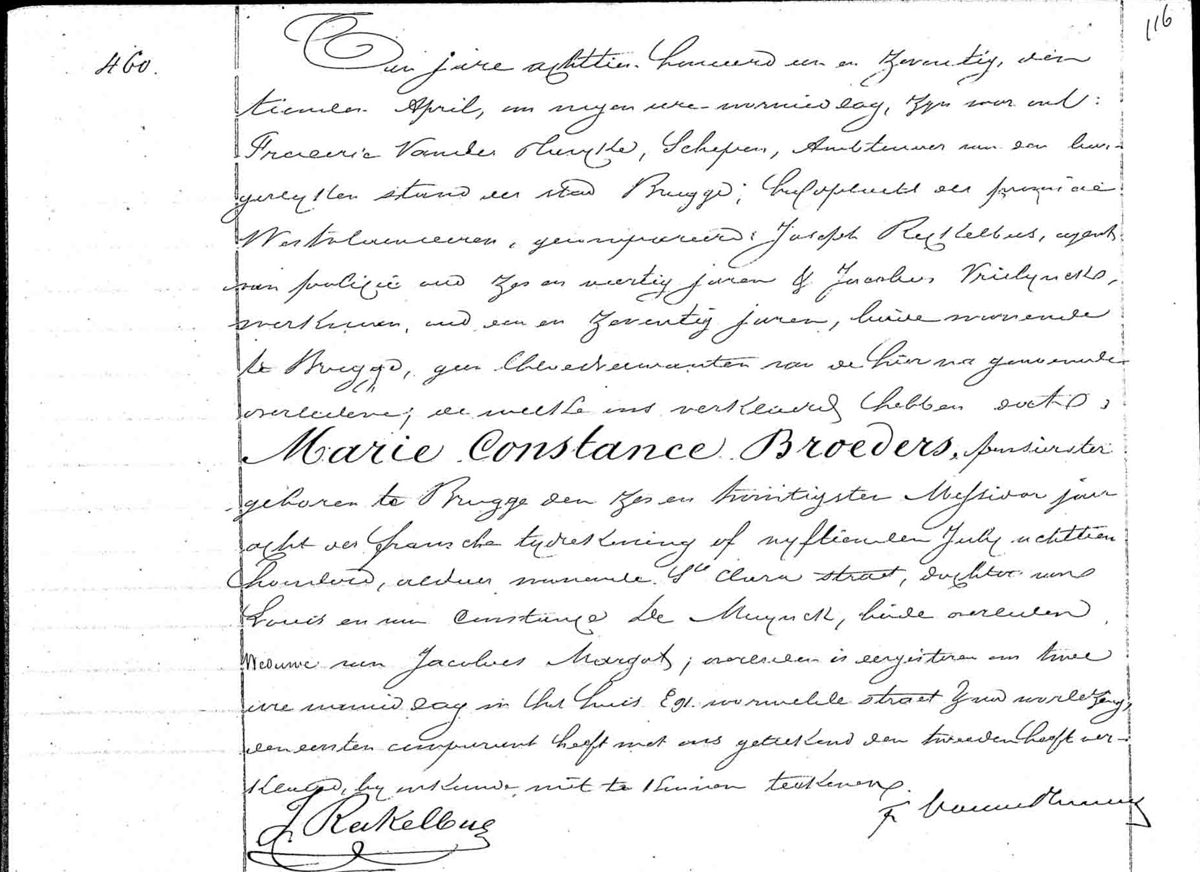 116
460.
Ten jare achttien honderd een en zeventig, den
tienden April, om negen ure voormiddag, zyn voor ons:
Frederic Vander Plancke, Schepen, Ambtenaer van den bur-
gerlyken stand der stad Brugge, hoofdplaats der provincie
Westvlaanderen, gecompareerd: Joseph Rekelbus, agent
van policie oud zes en veertig jaren & Jacobus Vrielynck,
werkman, oud een en zeventig jaren, beide wonende
te Brugge, geen bloedverwanten van de hier na genoemde
overledene; de welke ons verklaerd hebben dat
Marie Constance Broeders,
geboren te Brugge den zes en twintigsten Messidor jaar
acht der fransche tydrekening of vyftienden July achttien
honderd, aldaer wonende Ste Clara straet, dochter van
Louis en van Constance De Muynck, beide overleden
Weduwe van Jacobus Margot; overleden is eergisteren om twee
ure namiddag in het huis straet
den eersten comparant heeft met ons geteekend den tweeden heeft ver-
klaerd, by oorkonde niet te kunnen teekenen.
J Rekelbus
F